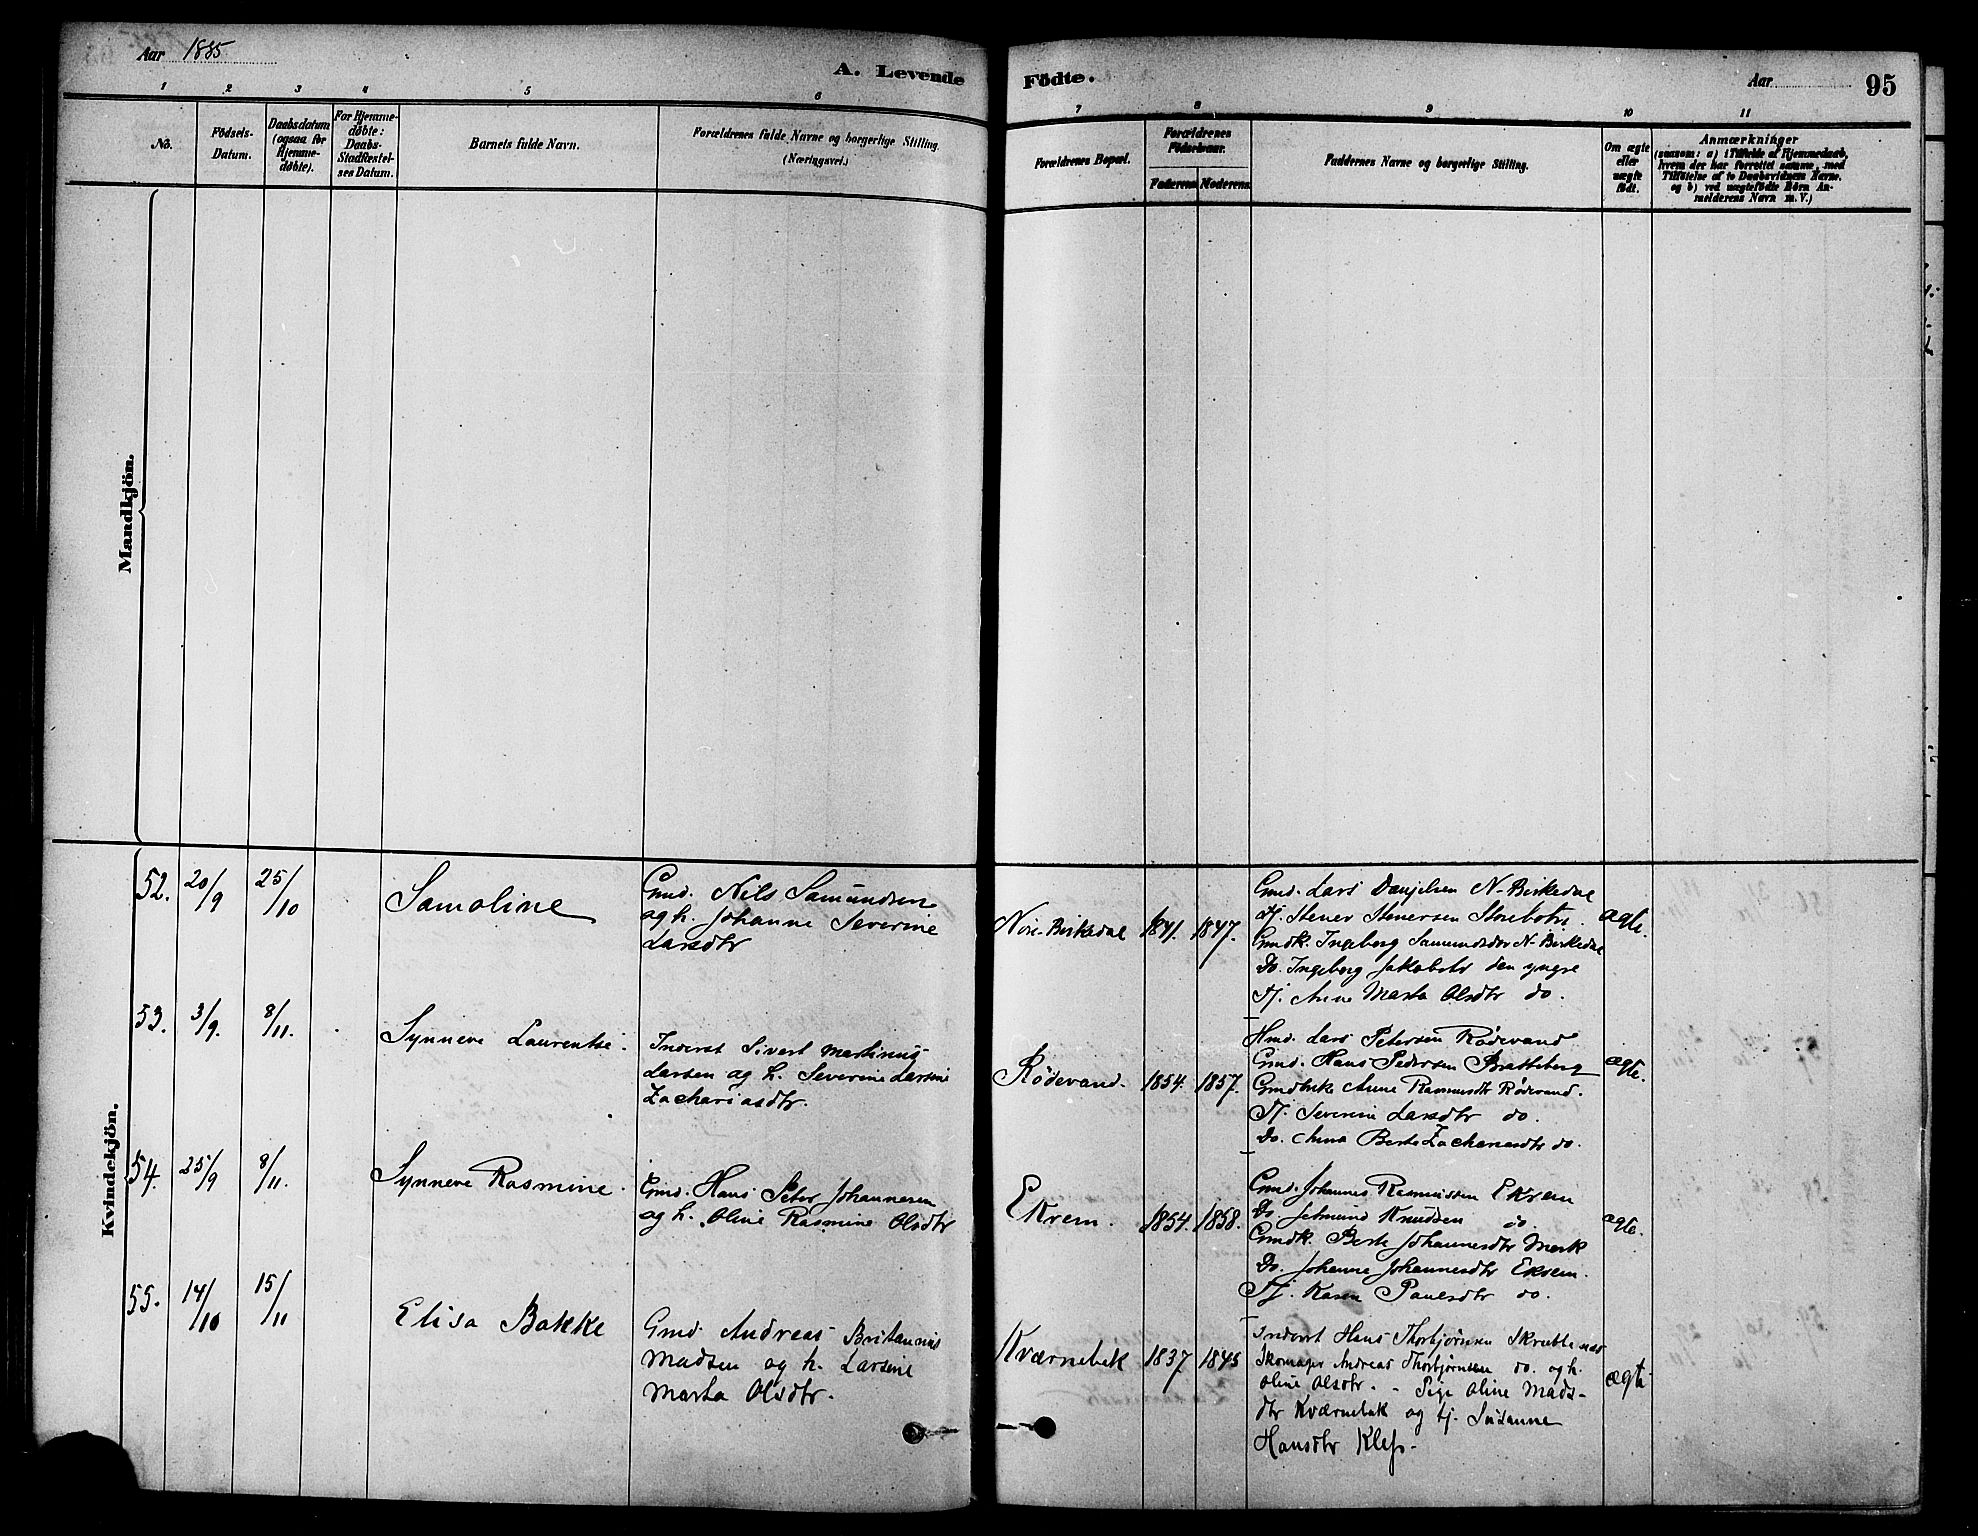 Aar 1885
A. Levende Födte.
Aar 95
1 2 3 4 5 6 7 8 9 10 11
No.
Födsels-Datum.
Daabsdatum (ogsaa for Hjemme-døbte).
For Hjemme-døbte: Daabs-Stadfæstel-ses Datum.
Barnets fulde Navn.
Forældrenes fulde Navne og borgerlige Stilling. (Næringsvei.)
Forældrenes Bopæl.
Forældrenes Födselsaar.
Faderens. Moderens.
Faddernes Navne og borgerlige Stilling.
Om ægte eller uægte født.
Anmærkninger
(saasom: a) i Tilfælde af Hjemmedaab,
hvem der har forrettet samme, med
Tilføielse af to Daabsvidners Navne.
og b) ved uægtefödte Börn An-
melderens Navn m. V.)
Mandkjön.
Kvindekjön.
52. 20/9 25/10 Samoline
Gmd. Nils Samundsen
og h. Johanne Severine
Larsdtr
Nore-Birkedal 1841. 1847.
Gmd. Lars Danjelsen N-Birkedal
Tj. Stener Stenersen
Gmdk. Ingeborg Samundsdtr N-Birkedal
Do. Ingeborg Jakobsdtr den yngre
Tj. Anne Marta Olsdtr do.
ægte.
53. 3/9. 8/11. Synneve Laurentse.
Inderst Sivert Martinus
Larsen og h. Severine Larsine
Zachariasdtr.
Rødevand. 1854. 1857.
Hmd. Lars Petersen Rødevand
Gmd. Hans Pedersen Bratteberg
Gmdenke Anne Rasmusdtr Rødevand.
Tj. Severine Larsdtr do.
Do. Anna Berte Zachariasdtr do.
ægte.
54. 25/9 8/11. Synneve Rasmine.
Gmd. Hans Peter Johannesen
og h. Oline Rasmine Olsdtr
Ekrem. 1854. 1858.
Gmd. Johannes Rasmussen Ekrem
Do. Jetmund Knudsen do.
Gmdk. Berte Johannesdtr Mork
Do. Johanne Johannesdtr Ekrem.
Tj. Karen Paulsdtr do.
ægte.
55. 14/10 15/11 Elisa Bakke
Gmd. Andreas Britannus
Madsen og h. Larsine
Marta Olsdtr.
Kværnebak 1837 1845
Inderst Hans Thorbjørnsen
Skomager Andreas Thorbjørnsen do. og h.
Oline Olsdtr. - Pige Oline Mads-
dtr Kværnebak og tj. Susanne
Hansdtr Klep.
ægte